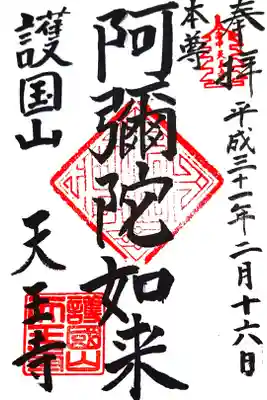 奉拝
平成三十一年二月十六日
本尊
阿彌陀如来
護国山
天王寺